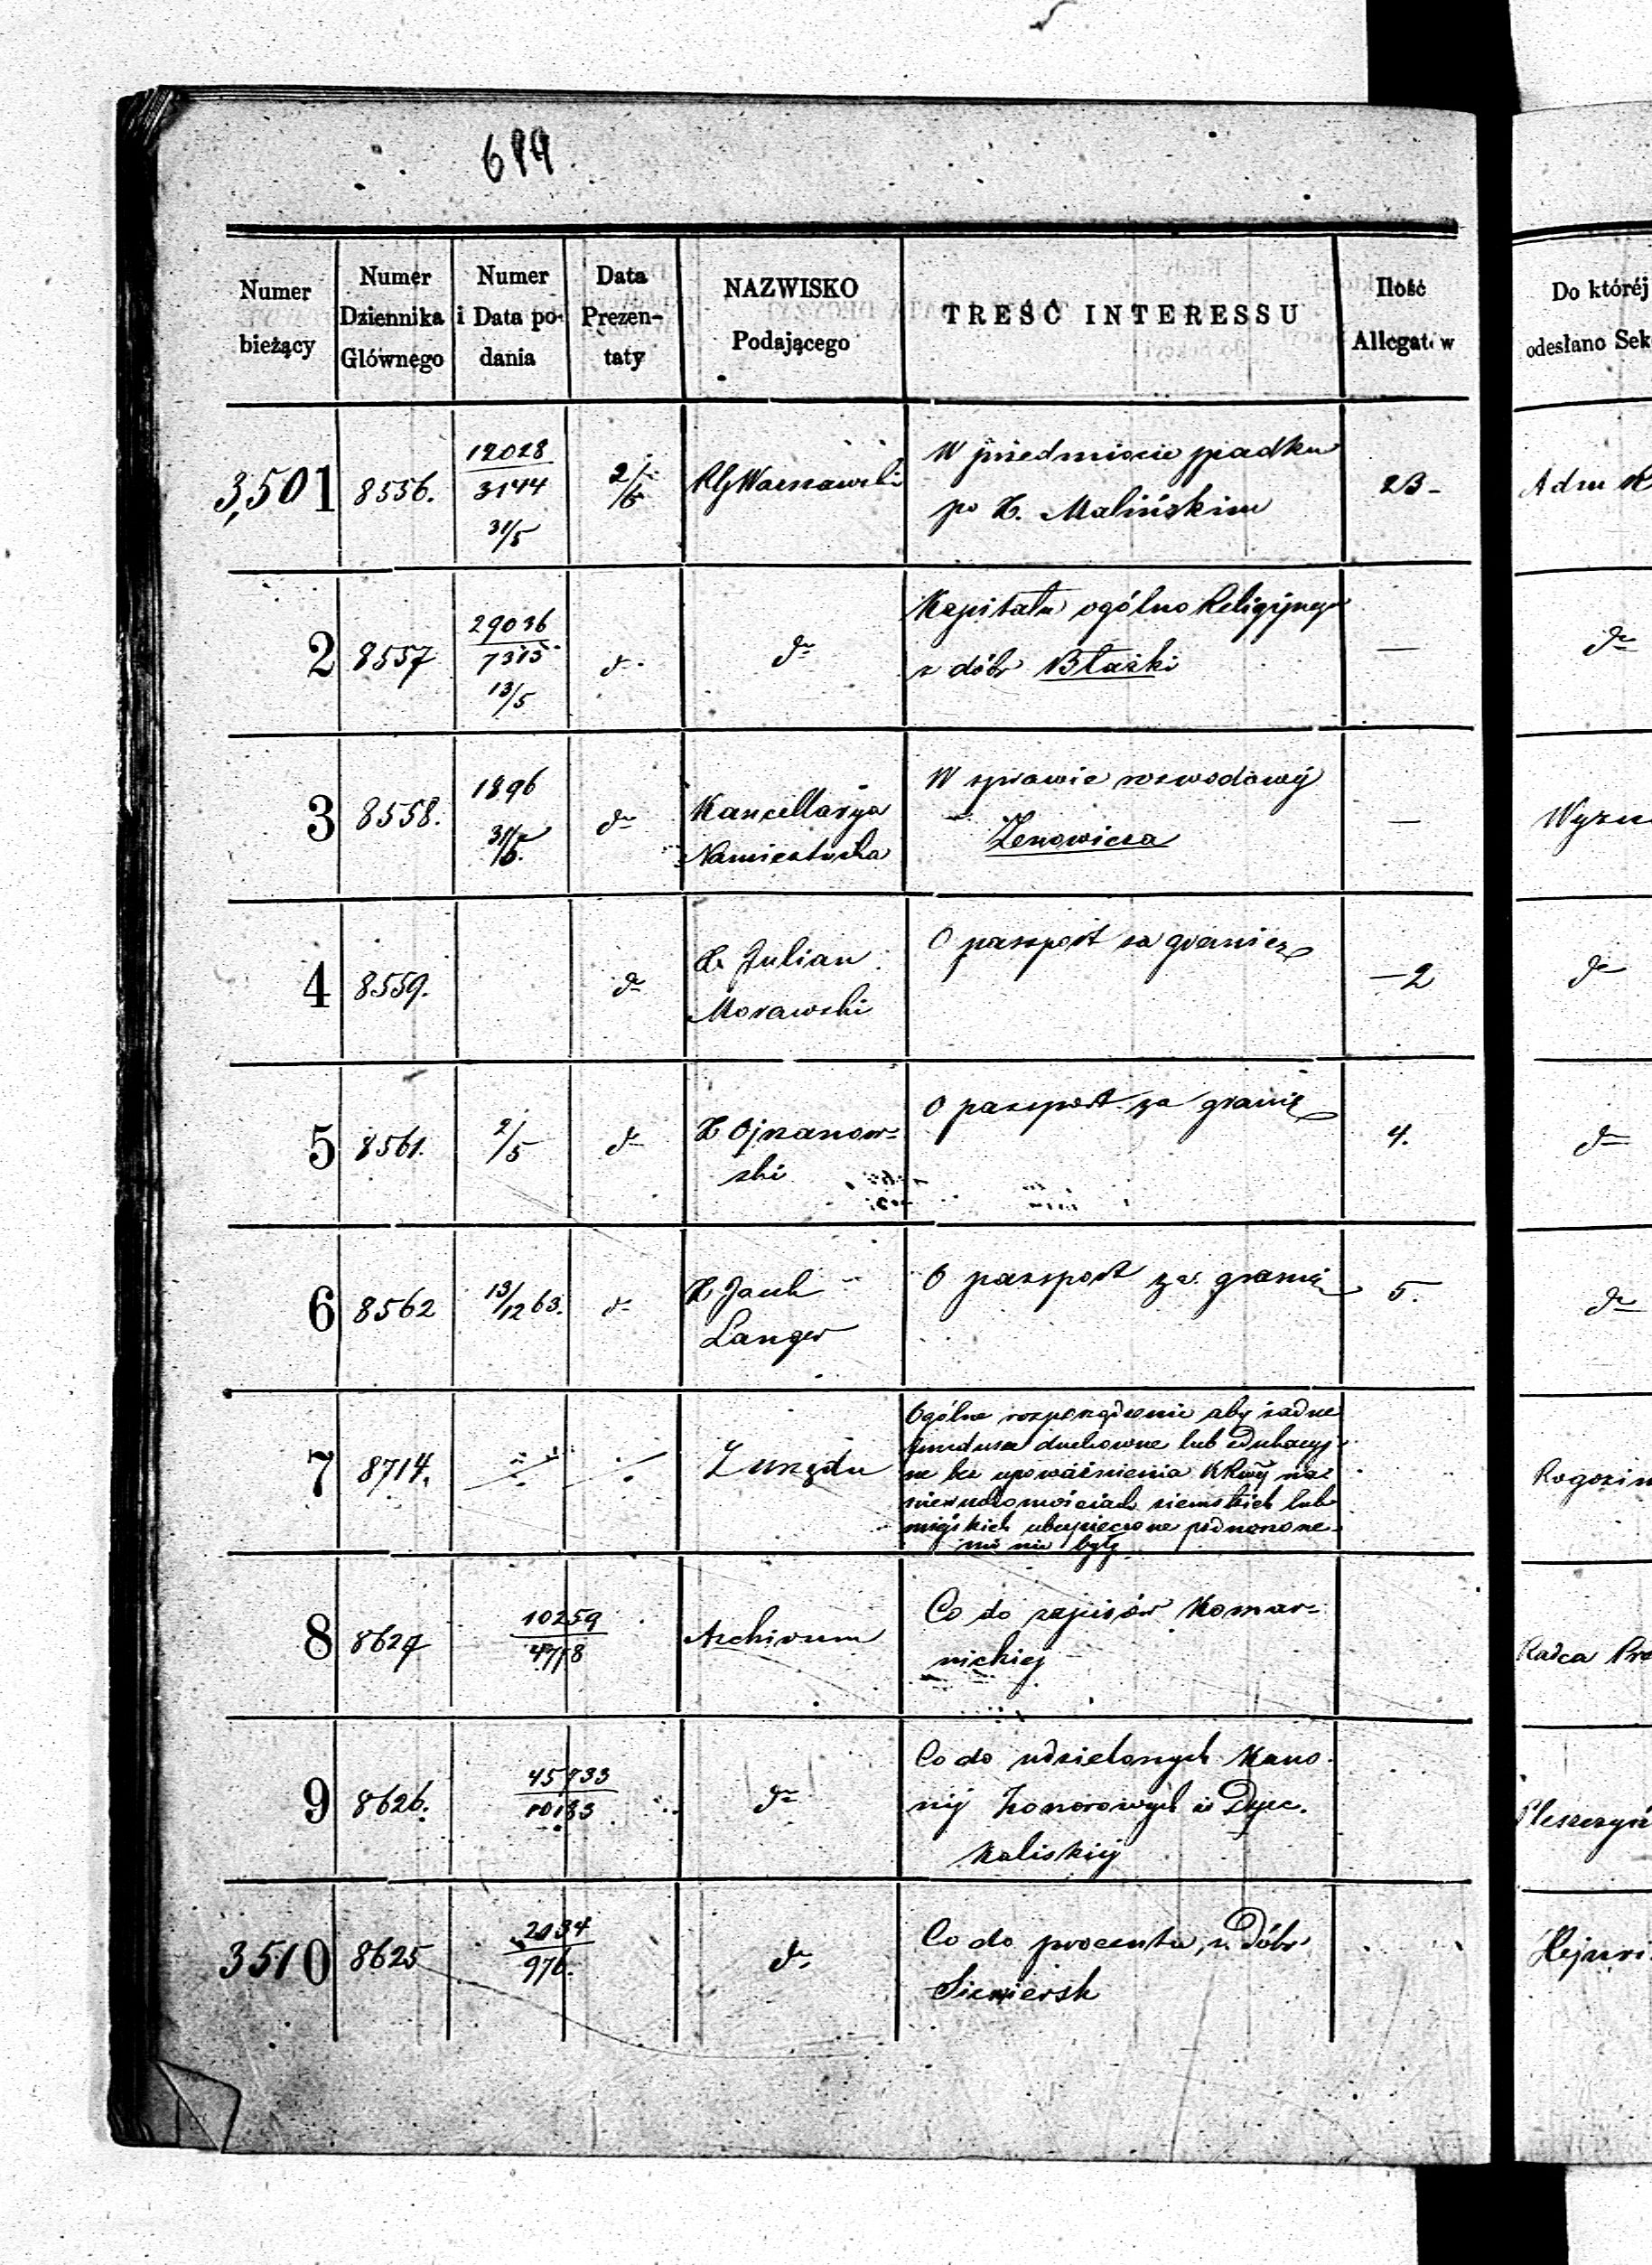 Numer bieżący
Numer Dziennika Głównego
Numer i Data podania
Data Prezentaty
NAZWISKO Podającego
TREŚĆ INTERESSU
Ilość Allegatów
Do któréj odesłano Sek
3,501 8556. 12028 3144 31/5 2/6 RG Warszawski W przedmiocie spadku 23-
po X. Malińskim
Adm
2 8557 29036 7315 13/5 do do Kapitału ogólno Religijnego —
z dóbr Błaszki
do
3 8558. 1896 31/5 do Kancellarya W sprawie rozwodowéj —
Namiestnika Zenowicza
Wyzn
4 8559. do X. Julian O paszport za granicę — 2
Morawski
do
5 8561. 2/5 do X Ojrzanow- O paszport za granię 4.
ski
do
6 8562 13/12 63. do X Jacek O paszport za granię 5.
Langer
do
7 8714. Z urzędu Ogólne rozporządzenie aby żadne
fundusze duchowne lub edukacyj-
ne bez upoważnienia na
nieruchomościach ziemskich lub
miejskich ubezpieczone podnoszone-
mi nie były
8 10259 4718 Archivum Co do zapisów Komar-
nickiej
Radca
9 8626. 10133 do Co do udzielonych Kano-
nij honorowych w Dyec.
Kaliskiéj
3510 8625 976. do Co do procentu z Dóbr
Siewiersk